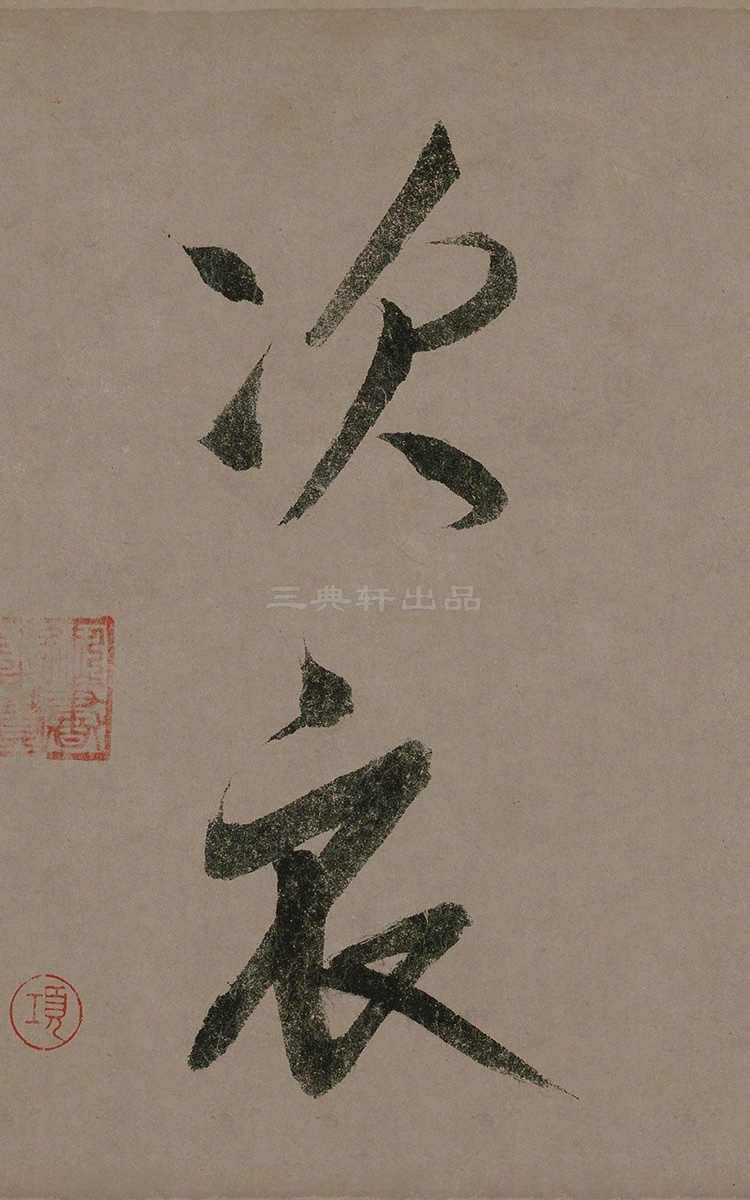 次
衣
三典轩出品
項